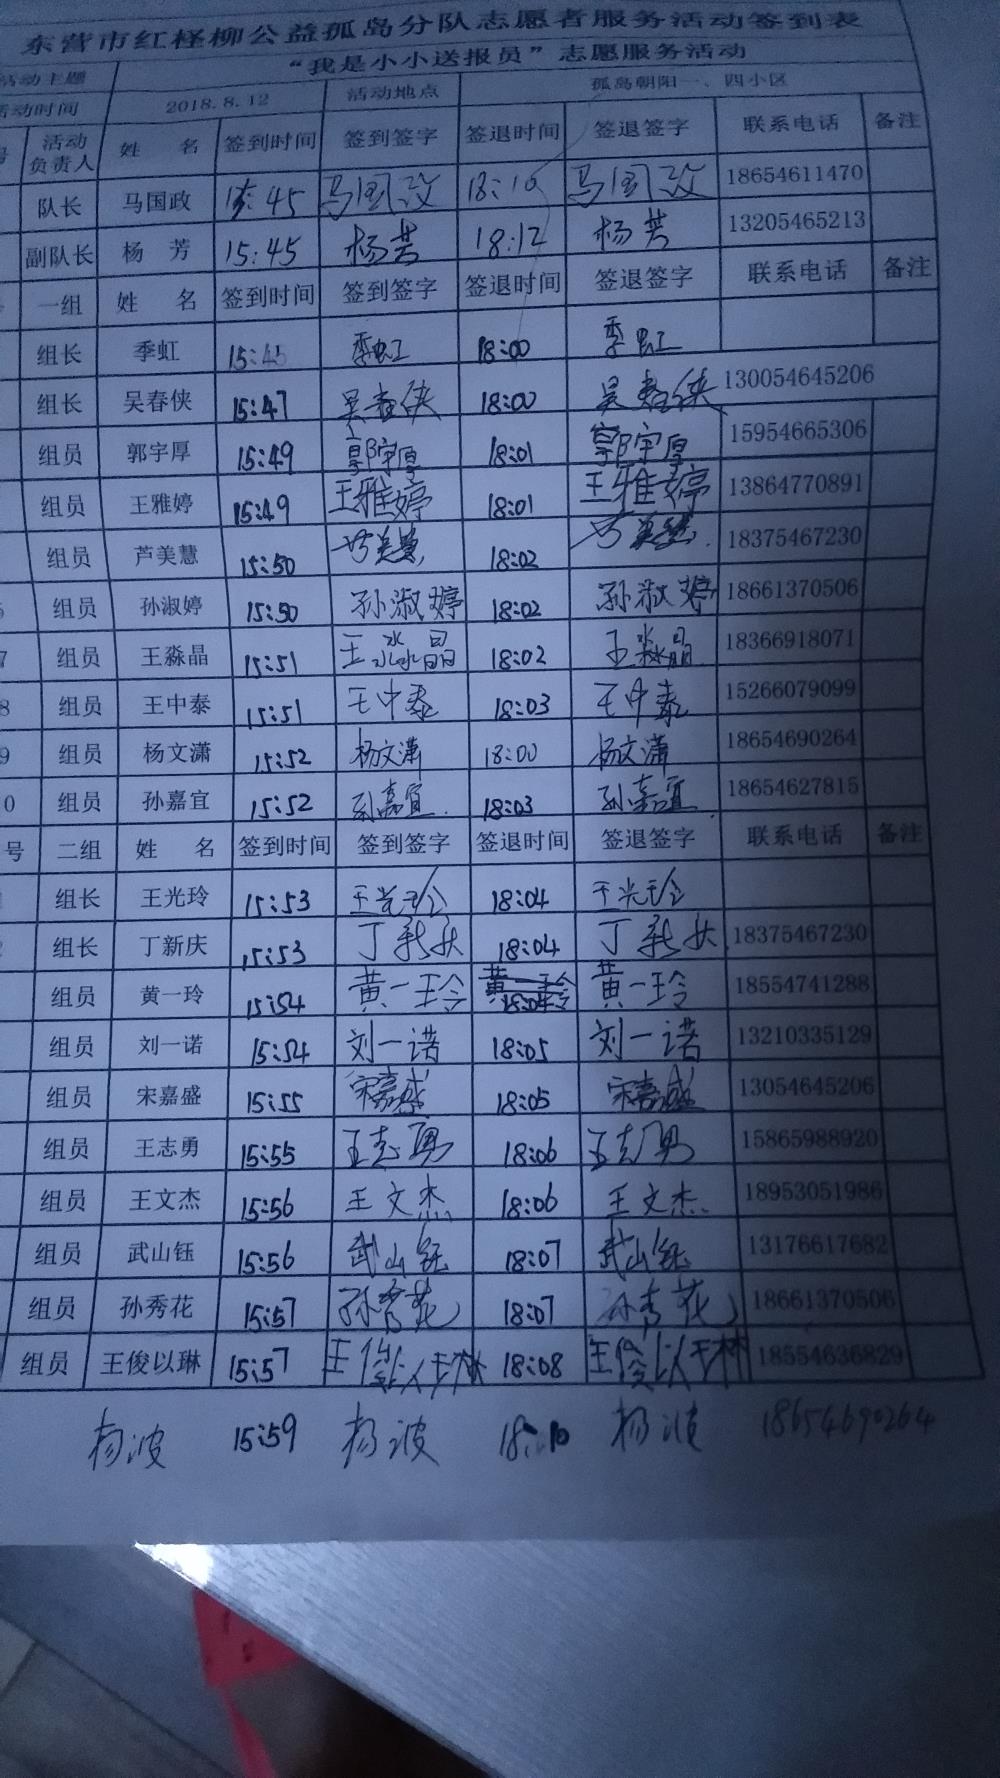 东营市红柽柳公益孤岛分队志愿者服务活动签到表
活动主题 “我是小小送报员”志愿服务活动
活动时间 2018.8.12 活动地点 孤岛朝阳一、四小区
号 活动负责人 姓 名 签到时间 签到签字 签退时间 签退签字 联系电话 备注
队长 马国政 15:45 马国政 18:10 马国政 18654611470
副队长 杨 芳 15:45 杨芳 18:12 杨芳 13205465213
一组 姓 名 签到时间 签到签字 签退时间 签退签字 联系电话 备注
组长 季虹 15:45 季虹 18:00 季虹
组长 吴春侠 15:47 吴春侠 18:00 吴春侠 130054645206
组员 郭宇厚 15:49 郭宇厚 18:01 郭宇厚 15954665306
组员 王雅婷 15:49 王雅婷 18:01 王雅婷 13864770891
组员 芦美慧 15:50 芦美慧 18:02 芦美慧 18375467230
组员 孙淑婷 15:50 孙淑婷 18:02 孙淑婷 18661370506
7 组员 王淼晶 15:51 王淼晶 18:02 王淼晶 18366918071
8 组员 王中泰 15:51 王中泰 18:03 王中泰 15266079099
9 组员 杨文潇 15:52 杨文潇 18:00 杨文潇 18654690264
0 组员 孙嘉宜 15:52 孙嘉宜 18:03 孙嘉宜 18654627815
号 二组 姓 名 签到时间 签到签字 签退时间 签退签字 联系电话 备注
组长 王光玲 15:53 王光玲 18:04 王光玲
组长 丁新庆 15:53 丁新庆 18:04 丁新庆 18375467230
组员 黄一玲 15:54 黄一玲 黄一玲 18:04 黄一玲 18554741288
组员 刘一诺 15:54 刘一诺 18:05 刘一诺 13210335129
组员 宋嘉盛 15:55 宋嘉盛 18:05 宋嘉盛 13054645206
组员 王志勇 15:55 王志勇 18:06 王志勇 15865988920
组员 王文杰 15:56 王文杰 18:06 王文杰 18953051986
组员 武山钰 15:56 武山钰 18:07 武山钰 13176617682
组员 孙秀花 15:57 孙秀花 18:07 孙秀花 18661370506
组员 王俊以琳 15:57 王俊以琳 18:08 王俊以琳 18554636829
杨波 15:59 杨波 18:10 杨波 18654690264